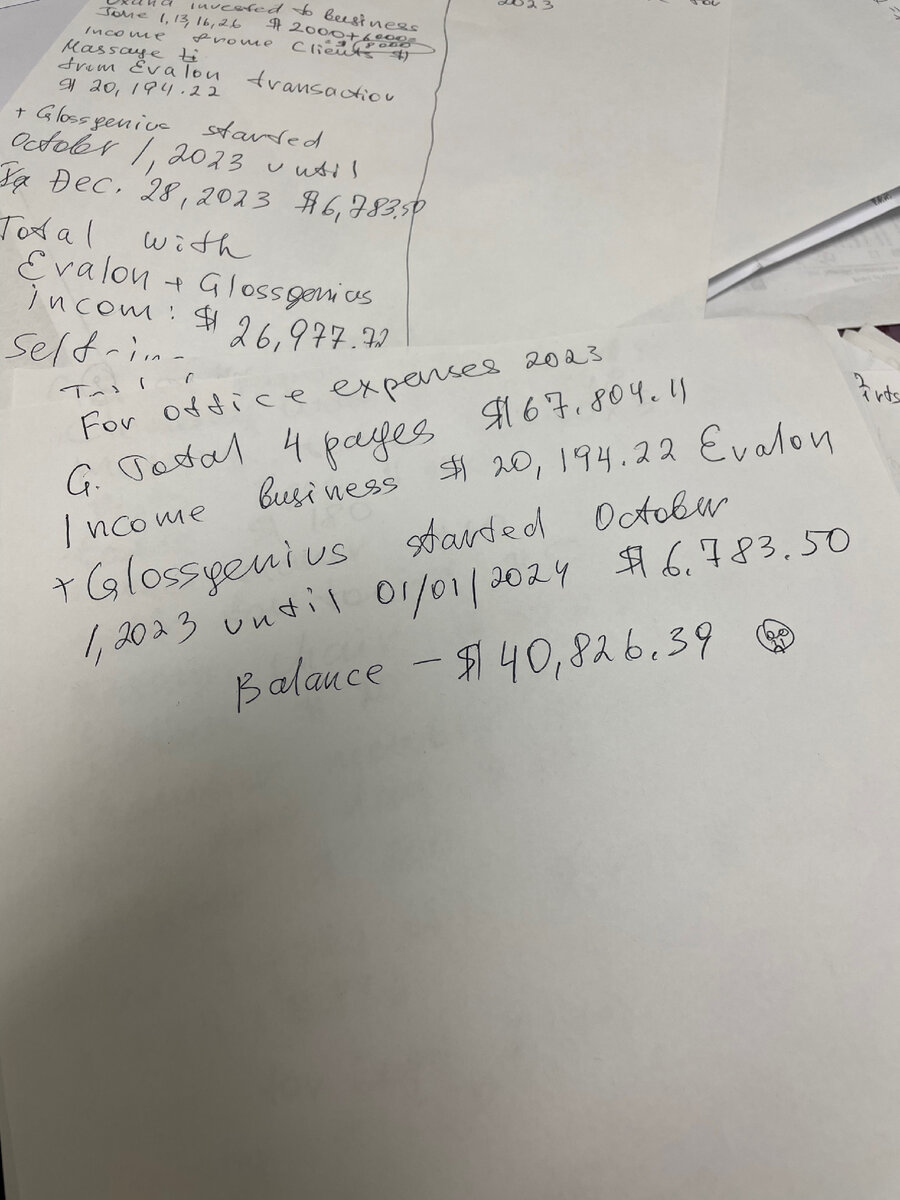 invested to business
June 1, 13, 16, 26 $ 2000+6000=
income frome Clients
Massage
from Evalon transaction
$ 20,194.22
+ Glossgenius started
October 1, 2023 until
Dec. 28, 2023 $6,783.50
Total with
Evalon + Glossgenius
incom: $ 26,977.72
Self-in
2023
For office expenses 2023
G. Total 4 pages $67.804.11
Income business $ 20,194.22 Evalon
+ Glossgenius started October
1, 2023 until 01/01/2024 $ 6.783.50
Balance - $ 40,826.39